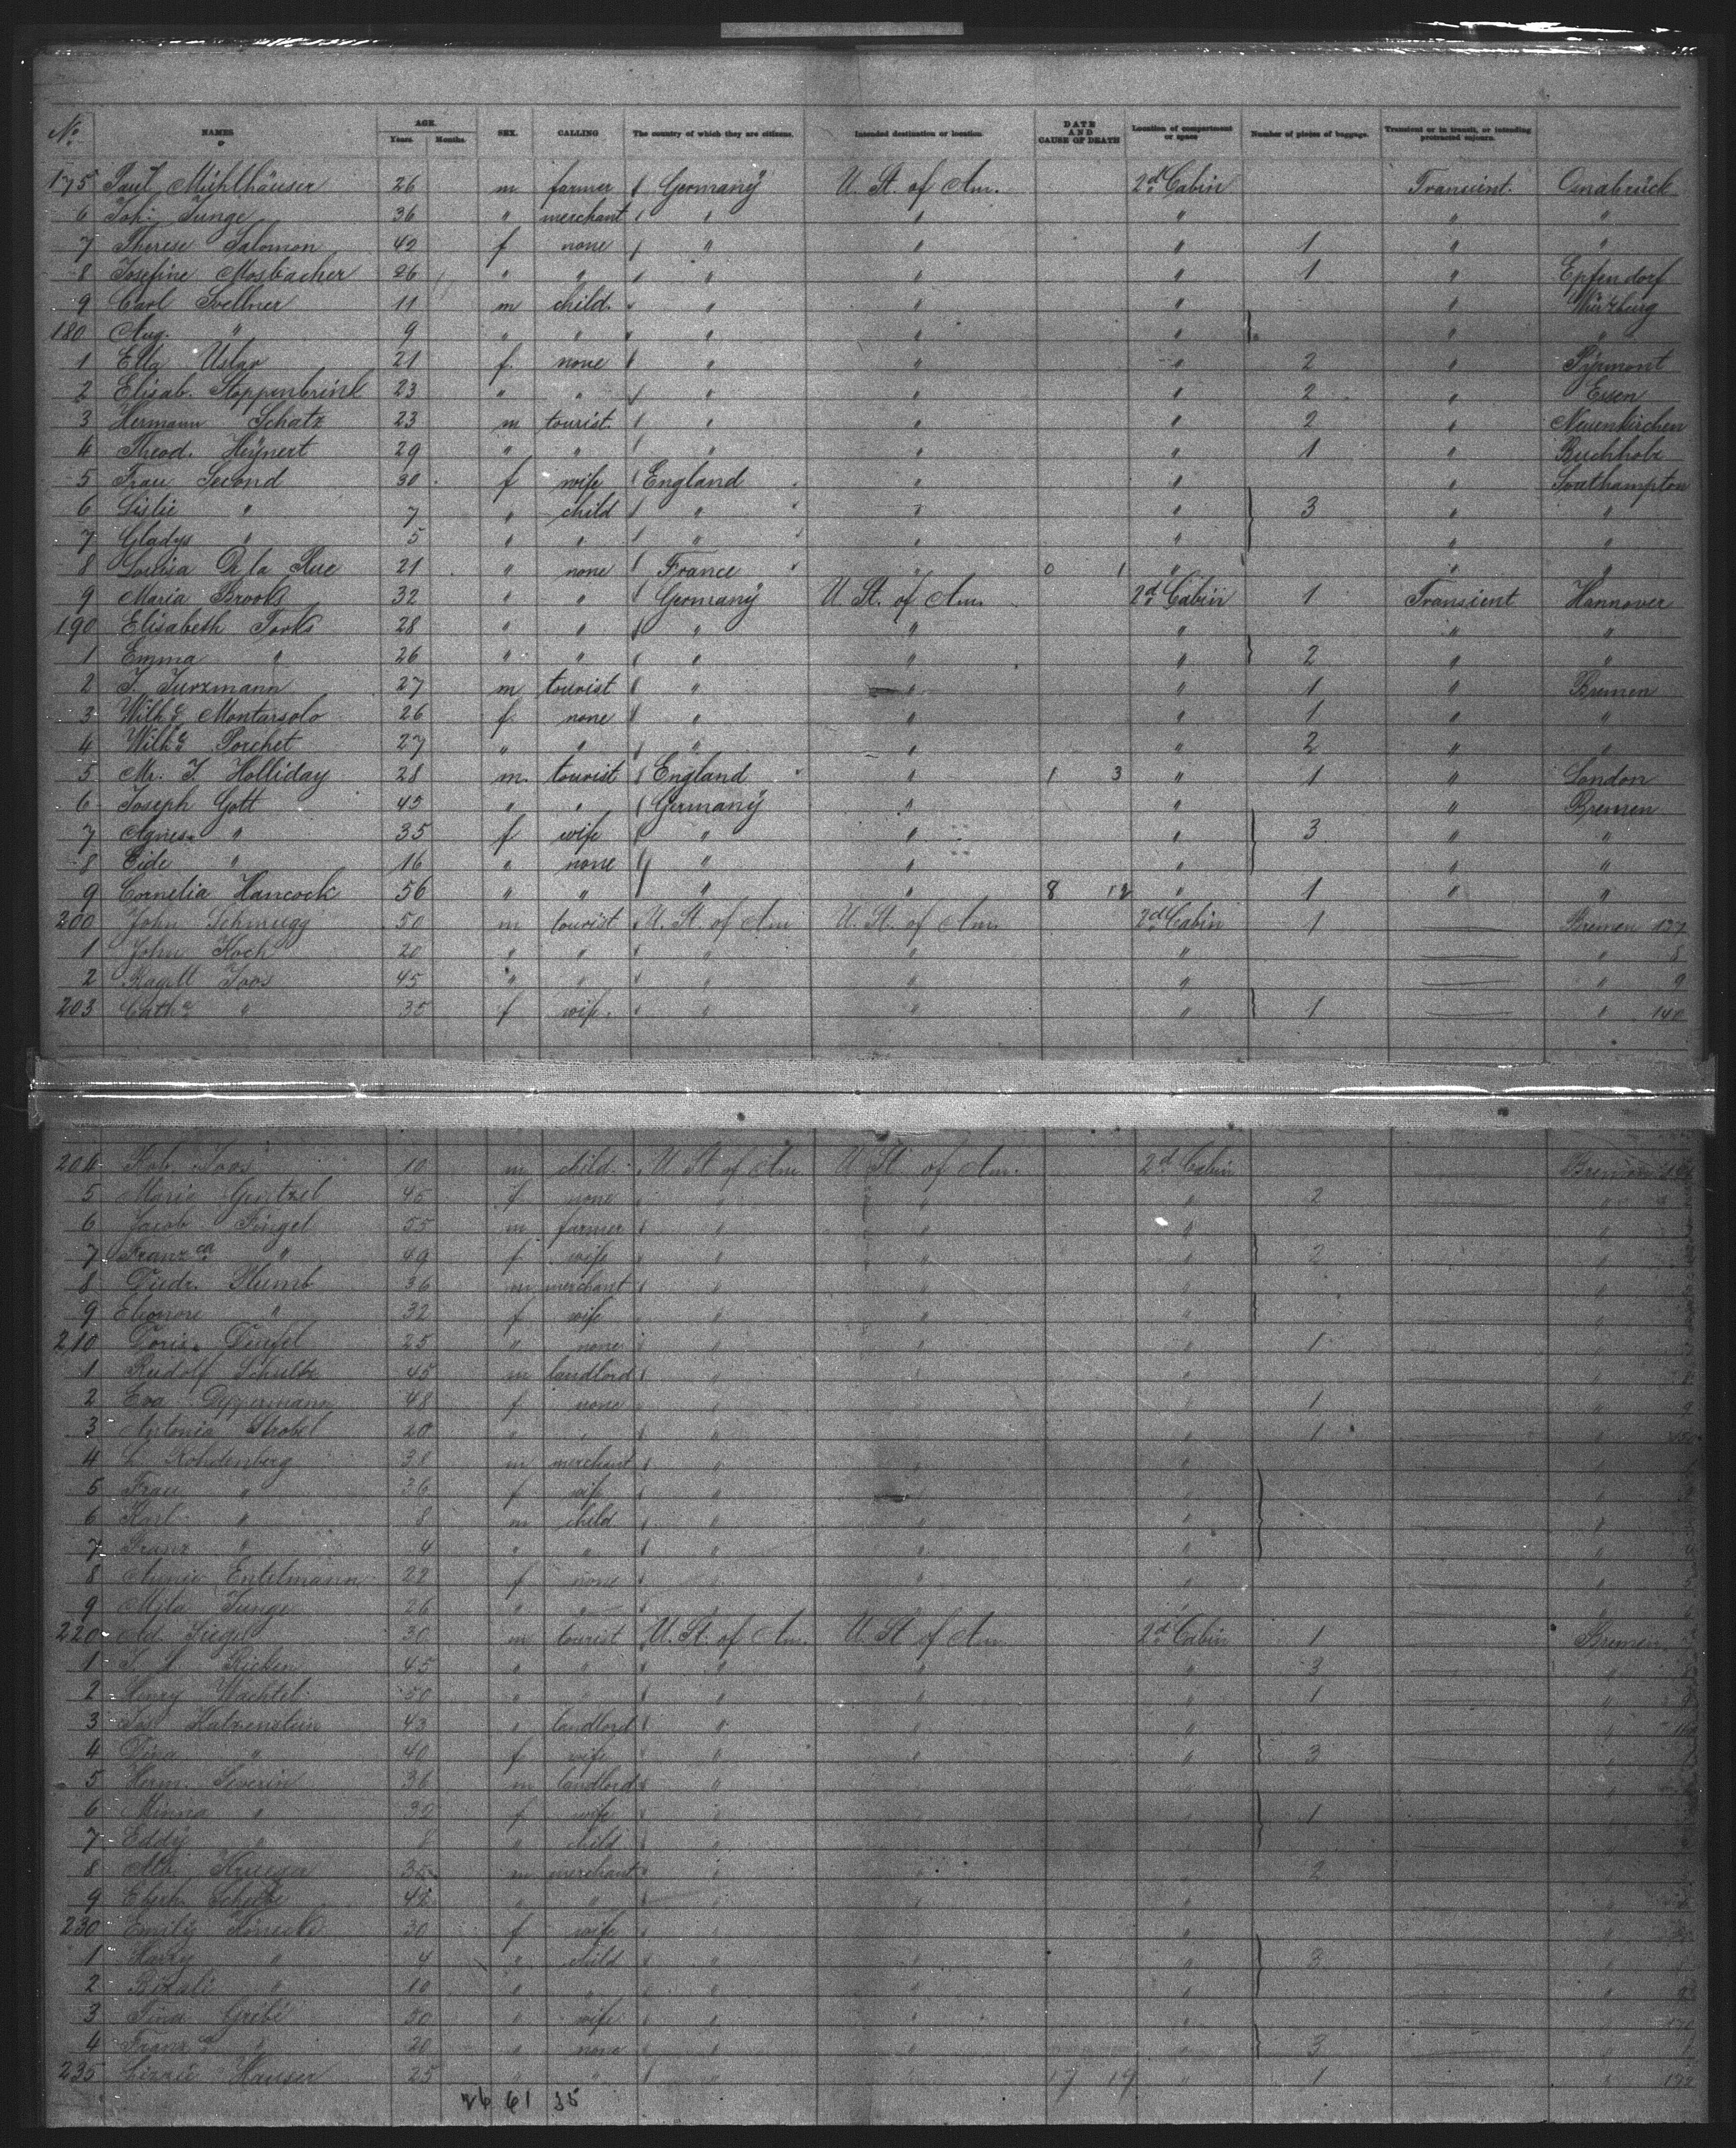 No. NAMES AGE. Years. Months. SEX. CALLING The country of which they are citizens. Intended destination or location. DATE AND CAUSE OF DEATH Location of compartment or space Number of pieces of baggage. Transient or in transit, or intending protracted sojourn.
175 Paul Mühlhäuser 26 m farmer Germany U. St. of Am. 2d Cabin Transient. Osnabrück
6 Joh: Junge 36 " merchant " " " " "
7 Therese Salomon 42 f none " " " 1 " "
8 Josefine Mosbacher 26 " " " " " 1 " Epfendorf
9 Carl Svellner 11 m child " " " " Würzburg
180 Aug. " 9 " " " " " " "
1 Ella Uslar 21 f. none " " " 2 " Pyrmont
2 Elisab. Stoppenbrink 23 " " " " " 2 " Essen
3 Hermann Schatz 23 m tourist " " " 2 " Neuenkirchen
4 Theod. Heÿnert 29 " " " " " 1 " Buchholz
5 Frau Second 30 f wife England " " " Southampton
6 Lislie " 7 " child " " " 3 " "
7 Gladys " 5 " " " " " " "
8 Louisa De la Rue 21 " none France " 0 1 " " "
9 Maria Brooks 32 " " Germany U. St. of Am. 2d Cabin 1 Transient Hannover
190 Elisabeth Torks 28 " " " " " " "
1 Emma " 26 " " " " " 2 " "
2 J. Jurzmann 27 m tourist " " " 1 " Bremen
3 Wilhe Montarsolo 26 f. none " " " 1 " "
4 Wilhe Porchet 27 " " " " " 2 " "
5 Mr. J. Holliday 28 m. tourist England " 1 3 " 1 " London
6 Joseph Gott 45 " " Germany " " " Bremen
7 Agnes " 35 f. wife " " " 3 " "
8 Eide " 16 " none " " " " "
9 Cornelia Hancock 56 " " " " 8 12 " 1 " "
200 John Schmugg 50 m tourist U. St. of Am U. St. of Am. 2d Cabin 1 Bremen 137
1 John Koch 20 " " " " " " 8
2 Joos 45 " " " " " " 9
203 Catha " 35 f wife " " " 1 " 140
204 Rob. Joos 10 m child U. St of Am U. St. of Am. 2d Cabin Bremen
5 Maria 45 f none " " " 2 "
6 Jacob Fingel 55 m farmer " " " "
7 Franzca " 49 f wife " " " 2 "
8 Diedr. Plump 36 m merchant " " " "
9 Eleonore " 32 f wife " " " "
210 Doris Teufel 25 " none " " " 1 "
1 Rudolf Schultz 45 m landlord " " " " 8
2 Eva Deppermann 48 f none " " " 1 " 9
3 Antonia Strobel 20 " " " " " 1 " 150
4 L. Rohdenberg 38 m merchant " " " "
5 Frau " 36 f wife " " " "
6 Karl " 8 m child " " " "
7 Franz " 4 " " " " " " 4
8 Annie Entelmann 22 f none " " " "
9 Mila Junge 26 " " " " " "
220 Ad. Siegel 30 m tourist U. St. of Am. U. St of Am. 2d Cabin 1 Bremen
1 Ricken 45 " " " " " 3 "
2 Henry Wachtel 50 " " " " " 1 " 9
3 Jos. Katzenstein 43 " landlord " " " " 160
4 Dina " 40 f wife " " " 3 "
5 Herm. Severin 36 m landlord " " " "
6 Minna " 32 f wife " " " 1 "
7 Eddy " 8 " child " " " "
8 35 m merchant " " " 2 "
9 Eberh. 42 " " " " " "
230 Emily 30 f wife " " " "
1 Harry " 4 " child " " " 3 "
2 " 10 " " " " " "
3 Tina Gribi 50 " wife " " " "
4 Franzca " 20 " none " " " 3 "
235 Lizzie Hauser 25 " " " " 17 19 " 1 " 172
26 61 35